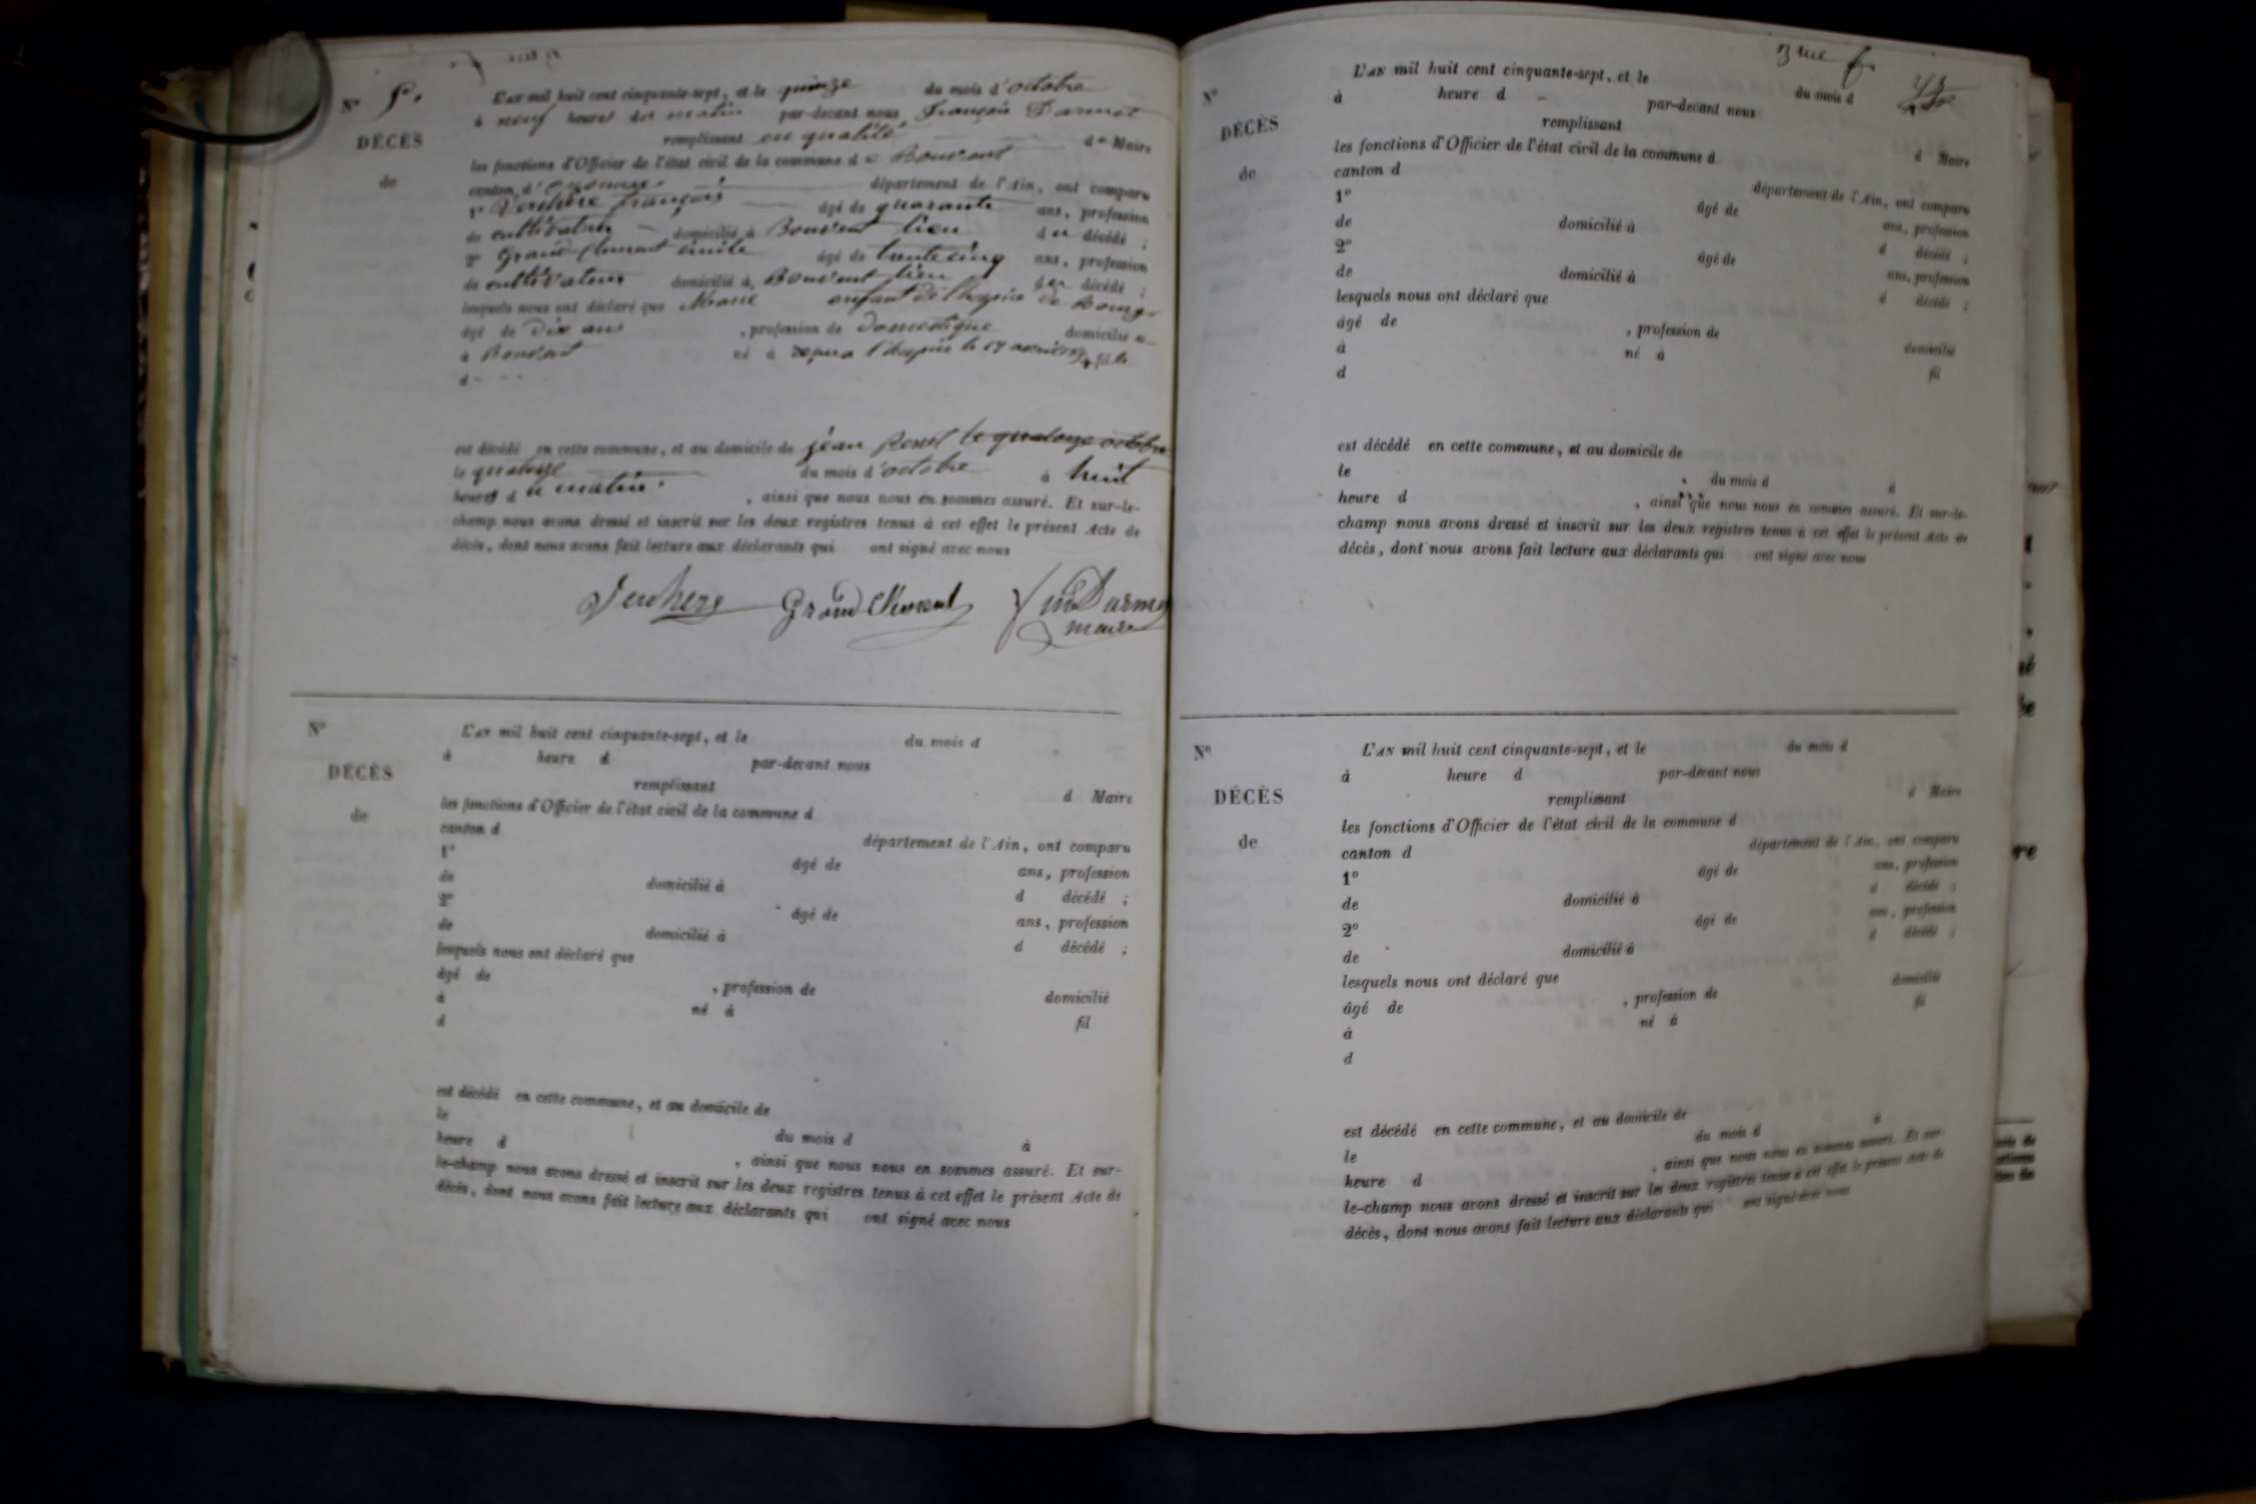 N°
DÉCÈS
de
L'AN mil huit cent cinquante-sept, et le quinze du mois d'octobre
à neuf heures du matin par-devant nous François Darmet
remplissant en qualité de Maire
les fonctions d'Officier de l'état civil de la commune de Bouvent
canton d'Oyonnax département de l'Ain, ont comparu
1° Verchère françois âgé de quarante ans, profession
de cultivateur domicilié à Bouvent lieu du décédé ;
2° Grand Clement émile âgé de trente cinq ans, profession
de cultivateur domicilié à Bouvent lieu du décédé ;
lesquels nous ont déclaré que enfant de l'hospice de Bourg
âgé de Dix ans , profession de Domestique domicilié
à Bouvent né à l'hospice le fil
d
est décédé en cette commune, et au domicile de jean le quatorze octobre
le quatorze du mois d'octobre à huit
heures du matin , ainsi que nous nous en sommes assuré. Et sur-le-
champ nous avons dressé et inscrit sur les deux registres tenus à cet effet le présent Acte de
décès, dont nous avons fait lecture aux déclarants qui ont signé avec nous
Verchere Grand Clement Darmet
maire
N°
DÉCÈS
de
L'AN mil huit cent cinquante-sept, et le du mois d
à heure d par-devant nous
remplissant d Maire
les fonctions d'Officier de l'état civil de la commune d
canton d département de l'Ain, ont comparu
1° âgé de ans, profession
de domicilié à d décédé ;
2° âgé de ans, profession
de domicilié à d décédé ;
lesquels nous ont déclaré que
âgé de , profession de domicilié
à né à fil
d
est décédé en cette commune, et au domicile de
le du mois d à
heure d , ainsi que nous nous en sommes assuré. Et sur-
le-champ nous avons dressé et inscrit sur les deux registres tenus à cet effet le présent Acte de
décès, dont nous avons fait lecture aux déclarants qui ont signé avec nous
N°
DÉCÈS
de
L'AN mil huit cent cinquante-sept, et le du mois d
à heure d par-devant nous
remplissant d Maire
les fonctions d'Officier de l'état civil de la commune d
canton d département de l'Ain, ont comparu
1° âgé de ans, profession
de domicilié à d décédé ;
2° âgé de ans, profession
de domicilié à d décédé ;
lesquels nous ont déclaré que
âgé de , profession de domicilié
à né à fil
d
est décédé en cette commune, et au domicile de
le du mois d à
heure d , ainsi que nous nous en sommes assuré. Et sur-le-
champ nous avons dressé et inscrit sur les deux registres tenus à cet effet le présent Acte de
décès, dont nous avons fait lecture aux déclarants qui ont signé avec nous
N°
DÉCÈS
de
L'AN mil huit cent cinquante-sept, et le du mois d
à heure d par-devant nous
remplissant d Maire
les fonctions d'Officier de l'état civil de la commune d
canton d département de l'Ain, ont comparu
1° âgé de ans, profession
de domicilié à d décédé ;
2° âgé de ans, profession
de domicilié à d décédé ;
lesquels nous ont déclaré que
âgé de , profession de domicilié
à né à fil
d
est décédé en cette commune, et au domicile de
le du mois d à
heure d , ainsi que nous nous en sommes assuré. Et sur-
le-champ nous avons dressé et inscrit sur les deux registres tenus à cet effet le présent Acte de
décès, dont nous avons fait lecture aux déclarants qui ont signé avec nous